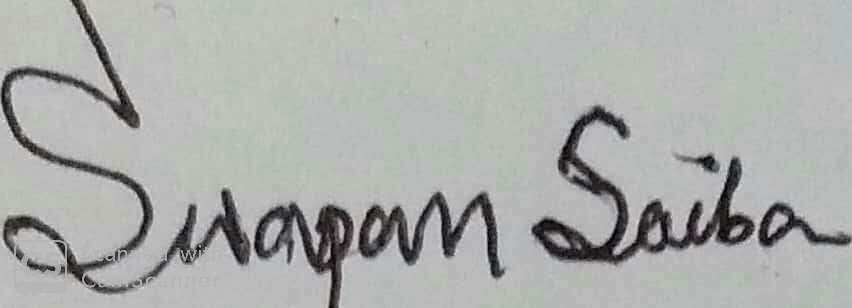 Swapan Saiba
Scanned with
CamScanner